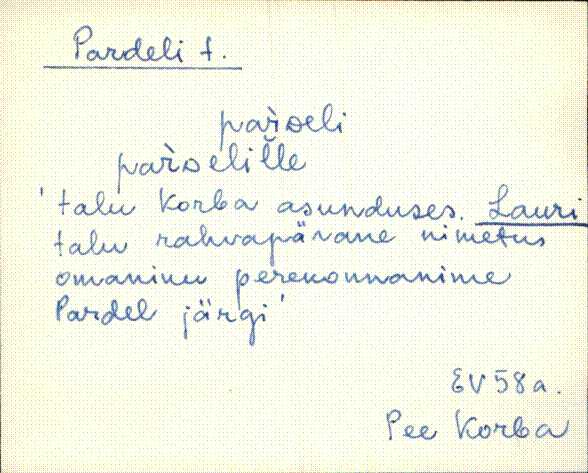 Pardeli t.
par̀ᴅeli
par̀ᴅelil̆le
'talu Korba asunduses. Lauri
talu rahvapärane nimetus
omaniku perekonnanime
Pardel järgi'
EV 58a.
Pee Korba